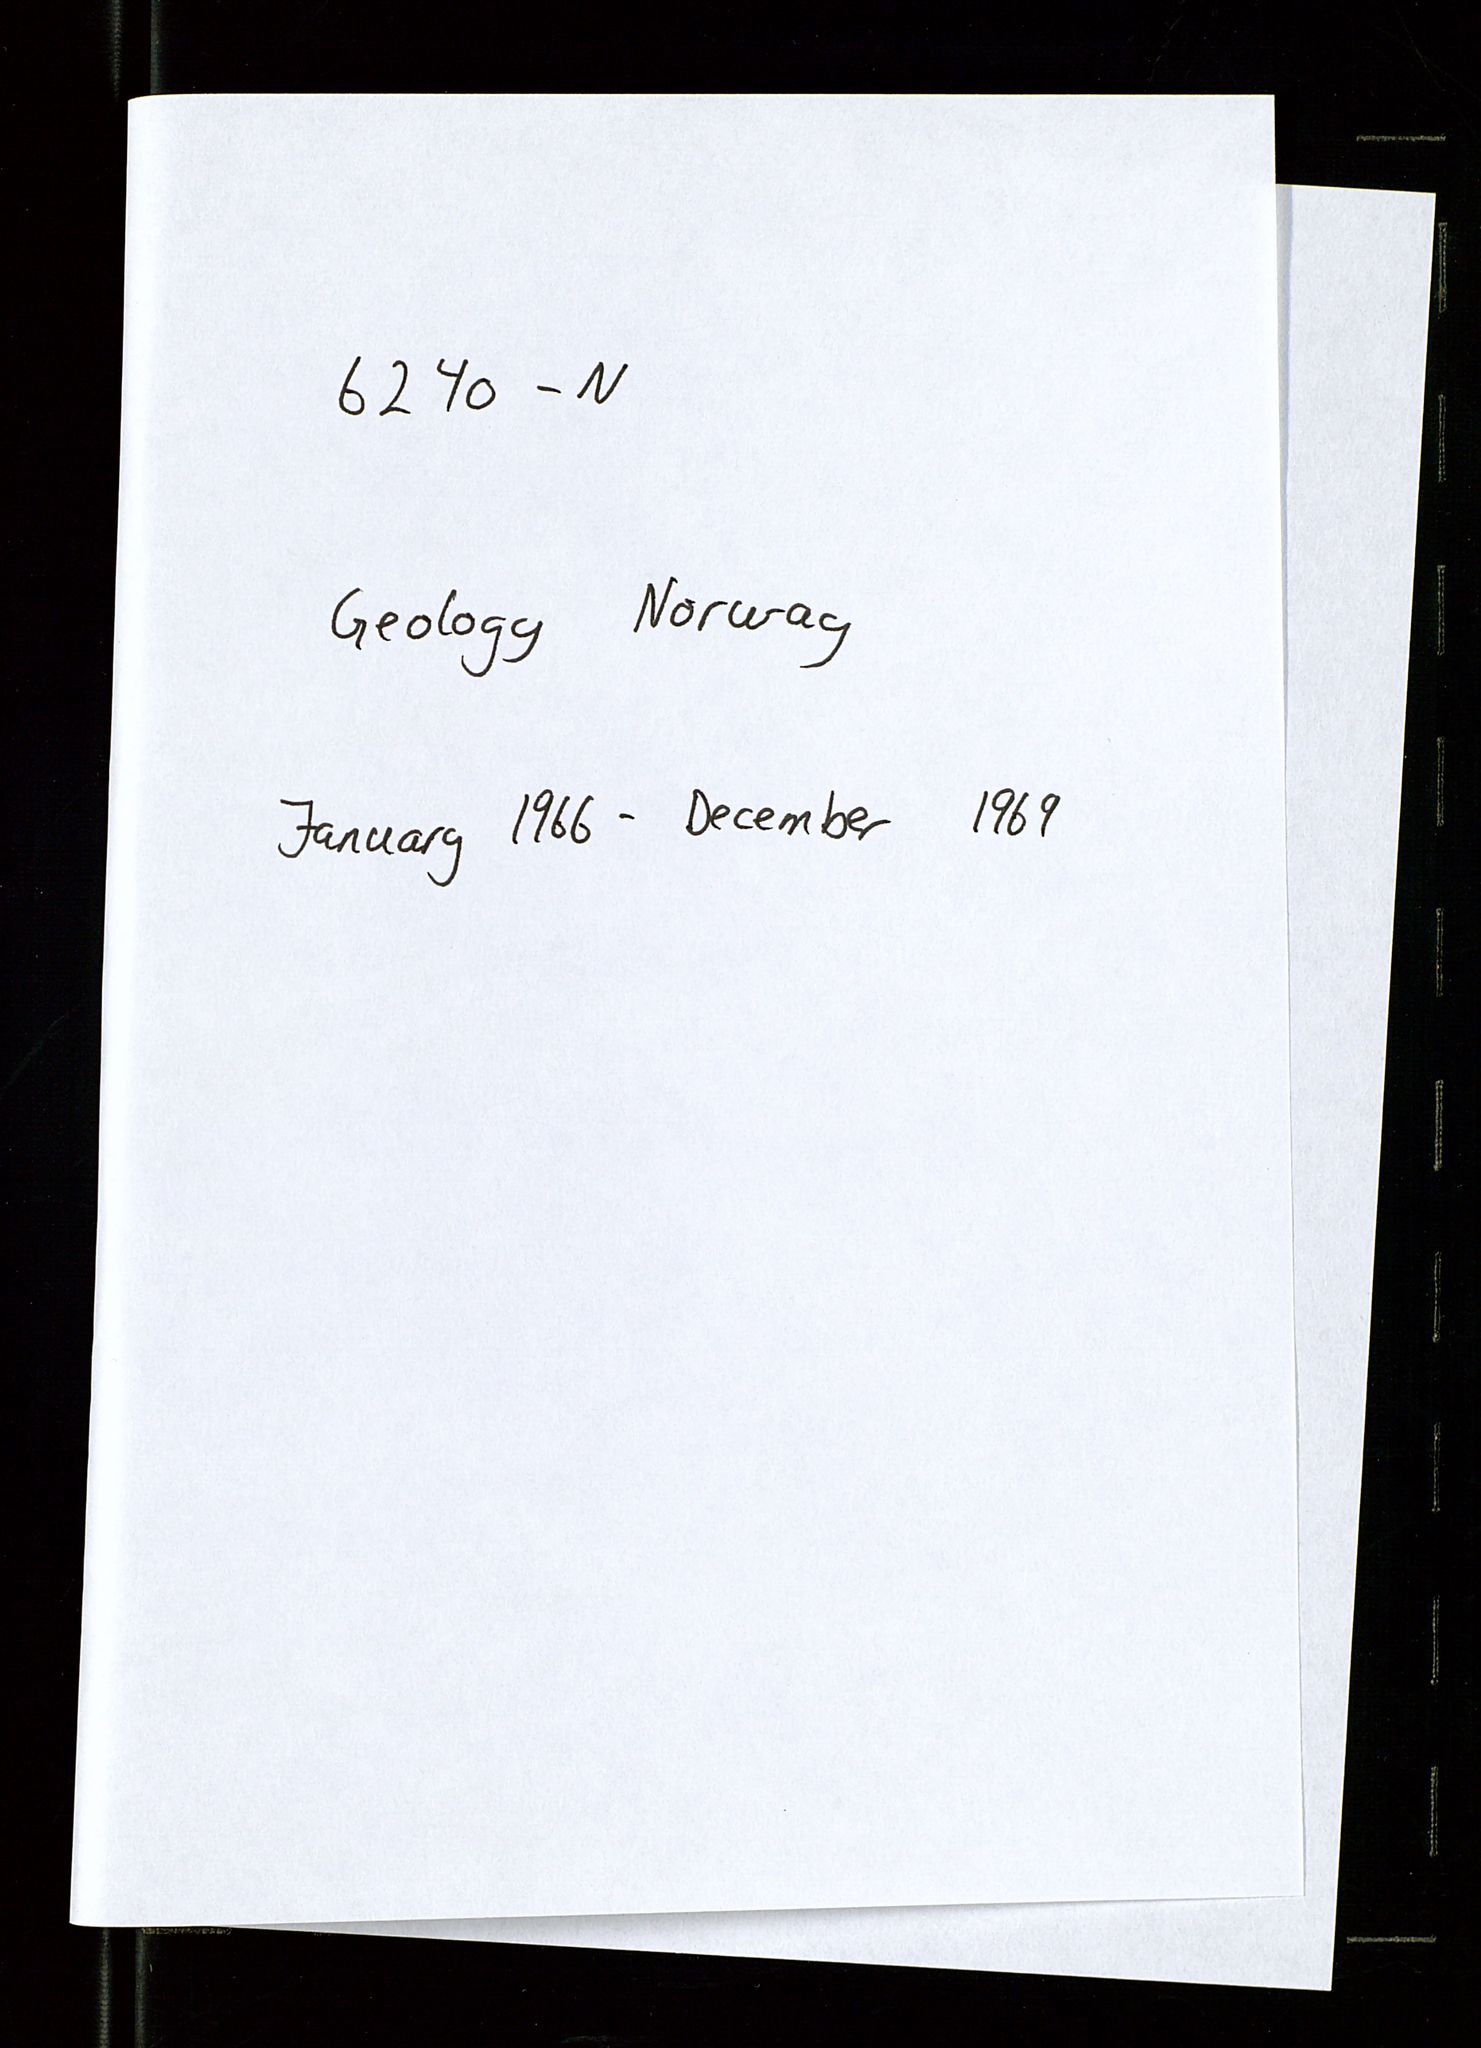 6240 - N
Geology Norway
January 1966 - December 1969